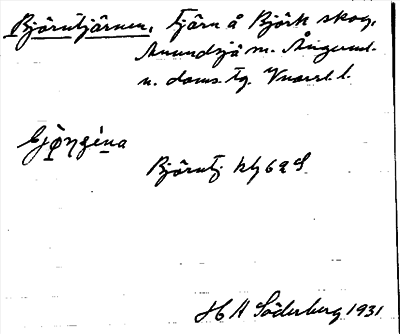 Björntjärnen, Tjärn å Björk skog,
Anundsjö sn. Ångerml.
n. doms. tg. Vnorrl. l.
Björntj kbl 62 S
H H Söderberg 1931